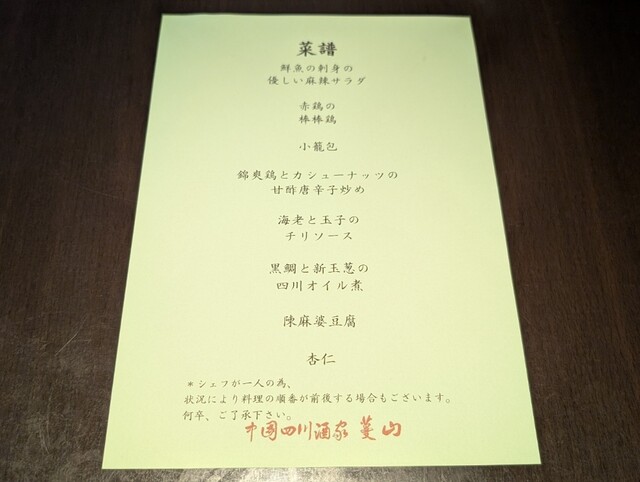 菜譜
鮮魚の刺身の
優しい麻辣サラダ
赤鶏の
棒棒鶏
小籠包
錦爽鶏とカシューナッツの
甘酢唐辛子炒め
海老と玉子の
チリソース
黒鯛と新玉葱の
四川オイル煮
陳麻婆豆腐
杏仁
*シェフが一人の為、
状況により料理の順番が前後する場合もございます。
何卒、ご了承下さい。
中国四川酒家 蔓山